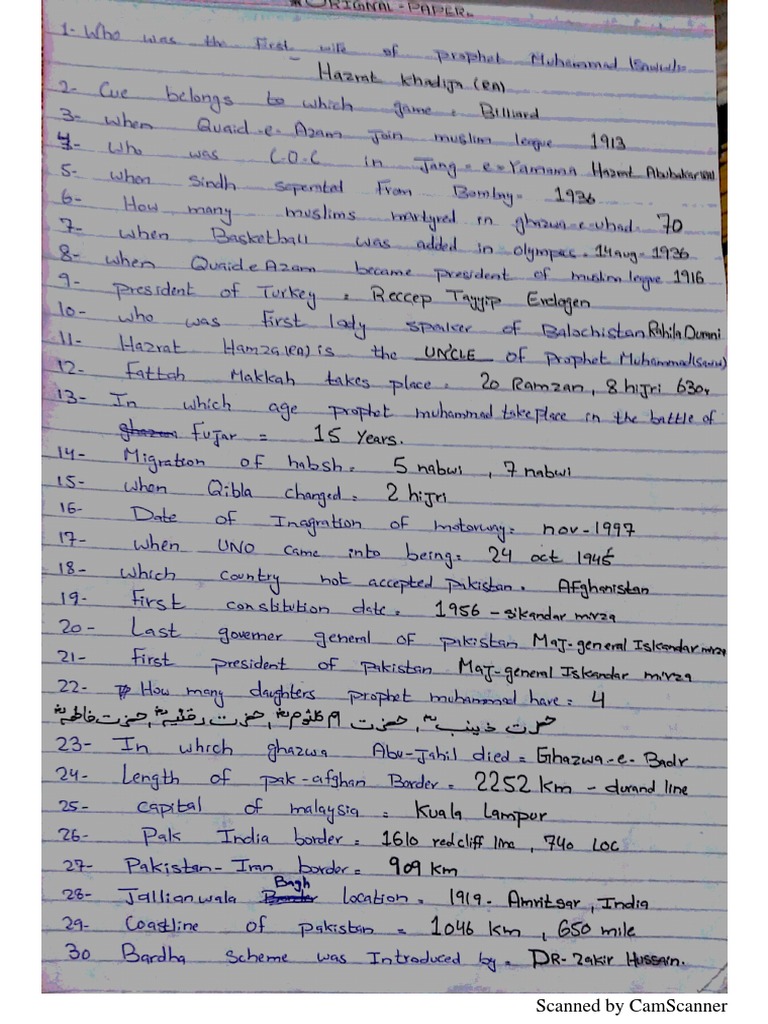 ORIGNAL-PAPER.
1- Who was the first wife of prophet Muhammad (saww)=
Hazrat Khadija (RA)
2- Cue belongs to which game = Billiard
3- When Quaid-e-Azam join muslim league 1913
4- Who was C.O.C in Jang-e-Yamama Hazrat Abubakar(RA)
5- when Sindh seperated from Bombay= 1936
6- How many muslims martyred in ghazwa-e-uhad. 70
7- when Basketball was added in olympics = 14 aug-1936
8- when Quaid e Azam became president of muslim legue 1916
9- president of Turkey = Reccep Tayyip Erdogen
10- who was first lady speaker of Balochistan Rahila Durrani
11- Hazrat Hamza(RA) is the UNCLE of Prophet Muhammad(saww)
12- Fattah Makkah takes place = 20 Ramzan, 8 hijri 630
13- In which age prophet muhammad take place in the battle of
Fujar = 15 Years.
14- Migration of habsh = 5 nabwi , 7 nabwi
15- when Qibla changed = 2 hijri
16- Date of Inagration of motorway = nov-1997
17- when UNO came into being = 24 oct 1945
18- which country not accepted pakistan. Afghanistan
19- first constitution date = 1956 - sikandar mirza
20- Last governer general of pakistan Maj-general Iskandar mirza
21- first president of pakistan Maj-general Iskandar mirza
22- How many daughters prophet muhammad have = 4
حضرت زینبؓ, حضرت ام کلثومؓ, حضرت رقیہؓ, حضرت فاطمہؓ
23- In which ghazwa Abu-Jahil died = Ghazwa-e-Badr
24- Length of pak-afghan Border = 2252 km - durand line
25- capital of malaysia = Kuala Lampur
26- Pak India border = 1610 redcliff line , 740 LOC
27- Pakistan-Iran border = 909 km
28- Jallianwala Bagh location = 1919- Amritsar, India
29- Coastline of pakistan = 1046 km , 650 mile
30 Bardha scheme was Introduced by = DR-zakir Hussain.
Scanned by CamScanner